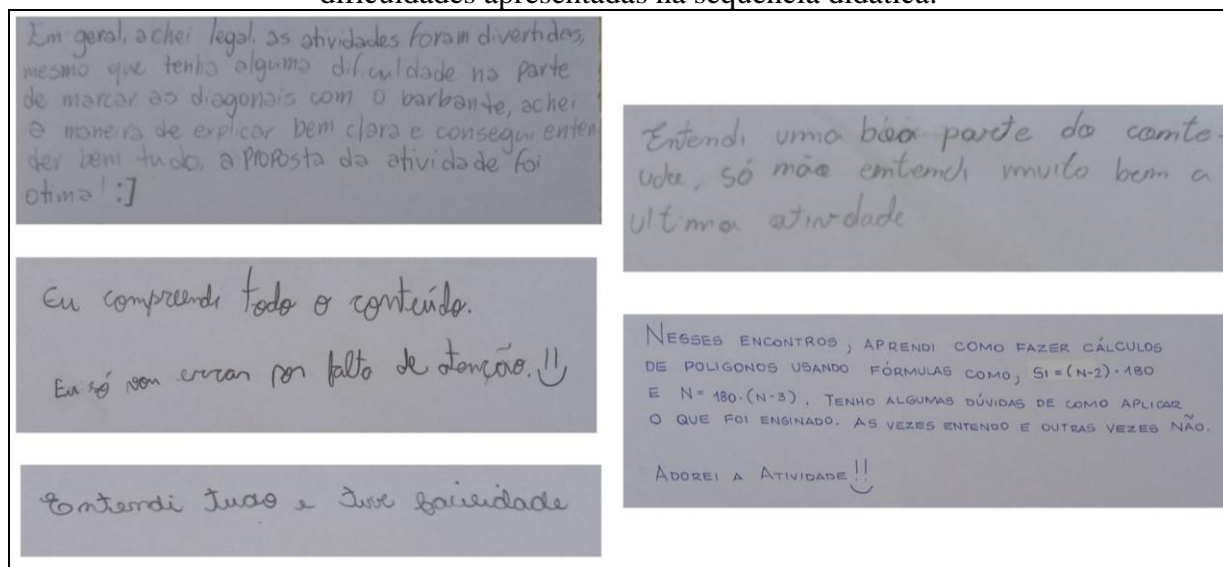 dificuldades apresentadas na sequência didática.
Em geral, achei legal, as atividades foram divertidas,
mesmo que tenha alguma dificuldade na parte
de marcar as diagonais com o barbante, achei
a maneira de explicar bem clara e consegui enten
der bem tudo, a proposta da atividade foi
otima! :]
Eu compreendi todo o conteúdo.
Eu só vou errar por falta de atenção. !!
Entendi tudo e tive facilidade
Entendi uma boa parte do conte-
udo, só não entendi muito bem a
ultima atividade
NESSES ENCONTROS, APRENDI COMO FAZER CÁLCULOS
DE POLIGONOS USANDO FÓRMULAS COMO, SI = (N-2) · 180
E N = 180 · (N-3). TENHO ALGUMAS DÚVIDAS DE COMO APLICAR
O QUE FOI ENSINADO. AS VEZES ENTENDO E OUTRAS VEZES NÃO.
ADOREI A ATIVIDADE !!